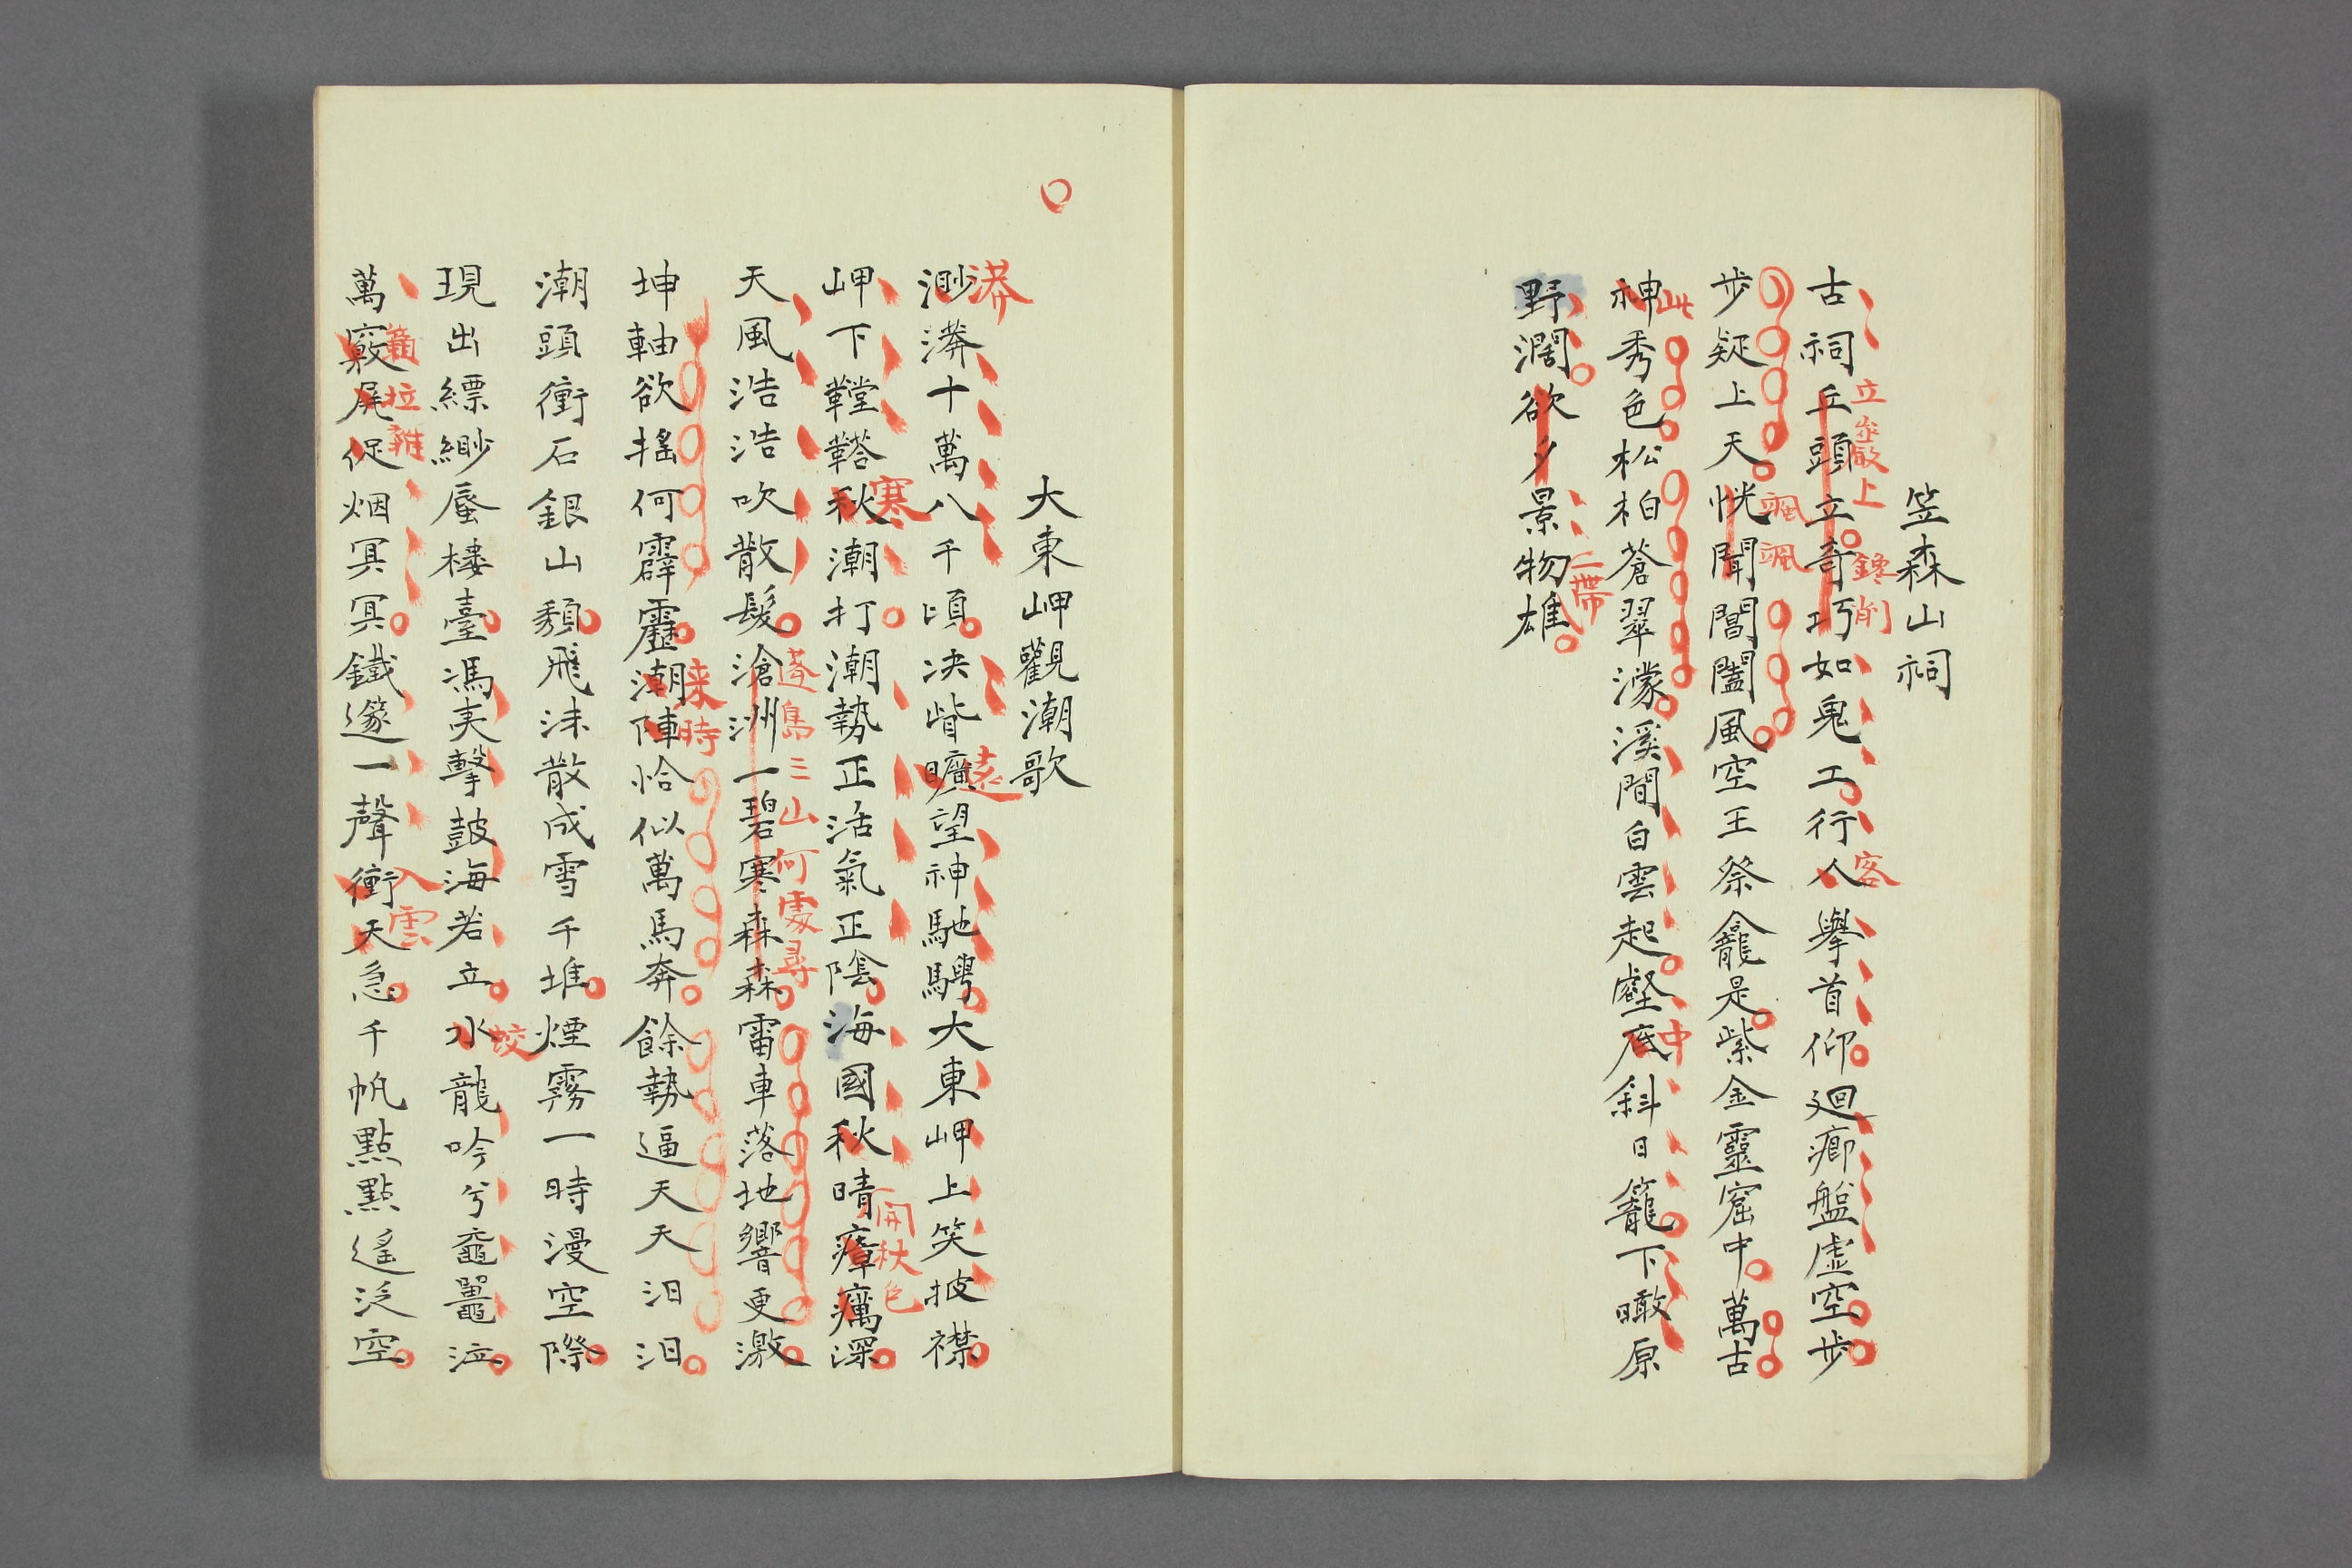 笠森山祠
古祠丘頭立奇巧如鬼工行人舉首仰廻廊盤虛空步
立巖上
鑱削
客
步疑上天恍聞閶闔風空王祭龕是紫金靈窟中萬古
颯颯
神秀色松柏蒼翠濛溪間白雲起壑底斜日籠下瞰原
此
中
野濶欲夕景物雄
一帶
大東岬觀潮歌
渺漭十萬八千頃决眥曠望神馳騁大東岬上笑披襟
漭
遠
岬下鞺鞳秋潮打潮勢正活氣正陰海國秋晴瘴癘深
寒
開秋色
天風浩浩吹散髮滄洲一碧寒森森雷車落地響更激
蓬島三山何處尋
坤軸欲搖何霹靂潮陣恰似萬馬奔餘勢逼天天汨汨
来時
潮頭衝石銀山頹飛沫散成雪千堆煙霧一時漫空際
現出縹緲蜃樓臺馮夷擊鼓海若立水龍吟兮黿鼉泣
蛟
萬竅尾促烟冥冥鐵邃一聲衝天急千帆點點遙泛空
入雲